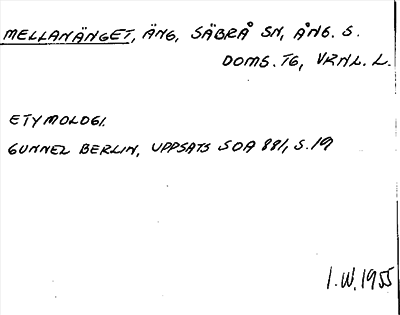 MELLANÄNGET, ÄNG, SÄBRÅ SN, ÅNG. S.
DOMS. TG, VRNL. L.
ETYMOLOGI.
GUNNEL BERLIN, UPPSATS SOA 881, S. 19
I. W. 1955